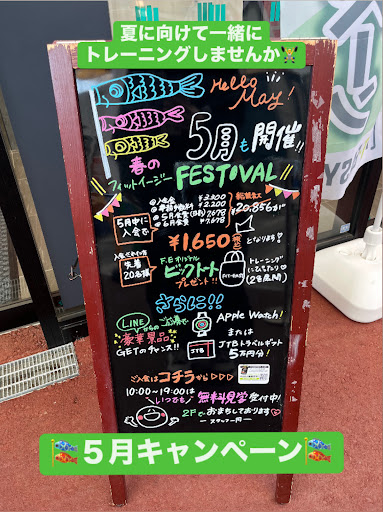 夏に向けて一緒に
トレーニングしませんか
Hello May!
5月も開催!!
春の
フィットイージー FESTIVAL
5月中に
入会で
入会金 ¥3,300
¥2,200
5月会費(日割)
6月会費 ¥7,678
総額最大
¥20,856が
¥1,650 税込 となります!
先着
20名様
F.E オリジナル
ビッグトート
プレゼント!!
トレーニング
さらに!!
LINE からの
ご応募で
豪華景品
GETのチャンス!!
Apple Watch!
または
JTB
JTBトラベルギフト
5万円分!
ご入会はコチラから▷▷▷
10:00〜19:00は
いつでも 無料見学受付中!
2Fでおまちしております
ースタッフ一同ー
5月キャンペーン